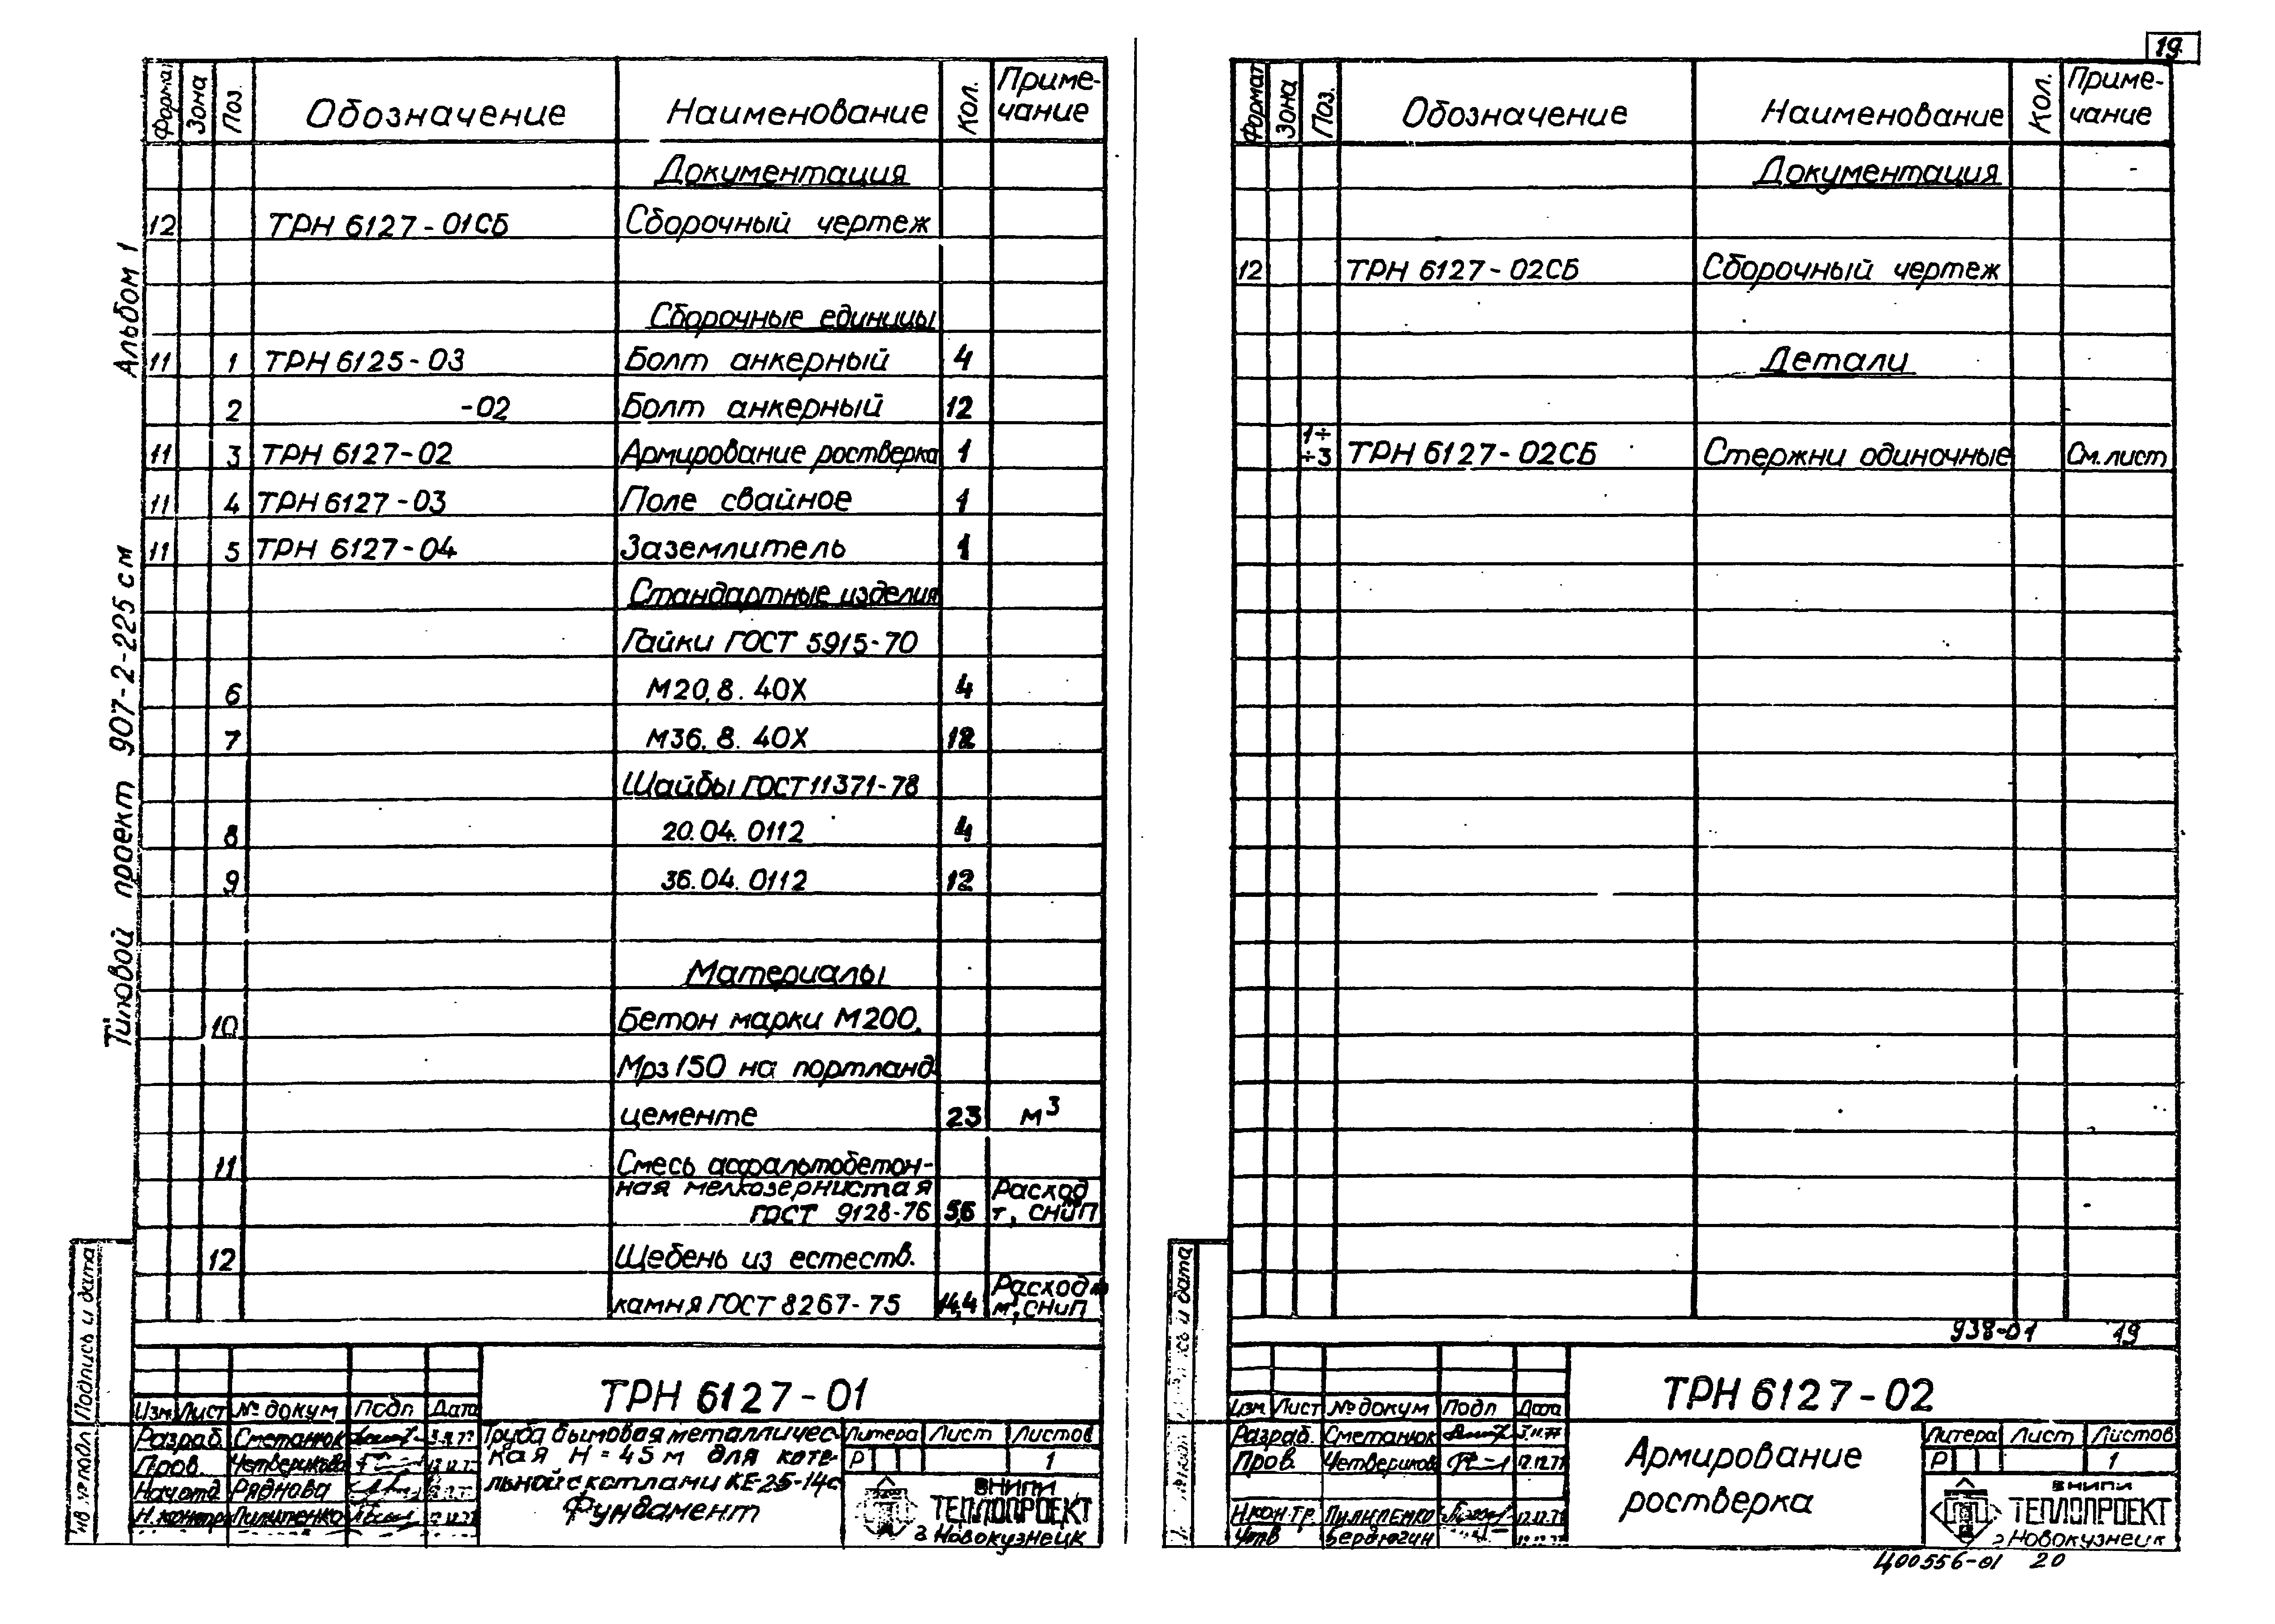 19
Альбом 1
Типовой проект 907-2-225 см
Формат Зона Поз. Обозначение Наименование Кол. Приме-
чание
Документация
12 ТРН 6127-01СБ Сборочный чертеж
Сборочные единицы
11 1 ТРН 6125-03 Болт анкерный 4
2 -02 Болт анкерный 12
11 3 ТРН 6127-02 Армирование ростверка 1
11 4 ТРН 6127-03 Поле свайное 1
11 5 ТРН 6127-04 Заземлитель 1
Стандартные изделия
Гайки ГОСТ 5915-70
6 М20.8.40Х 4
7 М36.8.40Х 12
Шайбы ГОСТ 11371-78
8 20.04.0112 4
9 36.04.0112 12
Материалы
10 Бетон марки М200,
Мрз 150 на портланд-
цементе 23 м³
11 Смесь асфальтобетон-
ная мелкозернистая Расход
ГОСТ 9128-76 5,6 т, СНиП
12 Щебень из естеств.
Расход
камня ГОСТ 8267-75 14,4 м³, СНиП
Подпись и дата
ТРН 6127-01
Изм Лист № докум Подп Дата
Разраб. Сметанюк
Пров. Четверикова
Нач отд Ряднова
Н.контр Пилипенко
Труба дымовая металличес-
кая Н = 45 м для коте-
льной с котлами КЕ-25-14с
Фундамент
Литера Лист Листов
Р 1
ВНИПИ
ТЕПЛОПРОЕКТ
г Новокузнецк
Формат Зона Поз. Обозначение Наименование Кол. Приме-
чание
Документация
12 ТРН 6127-02СБ Сборочный чертеж
Детали
1÷
÷3 ТРН 6127-02СБ Стержни одиночные См. лист
938-01 19
и дата
ТРН 6127-02
Изм Лист № докум Подп Дата
Разраб. Сметанюк
Пров. Четвериков 12.12.77
Н.контр. Пилипенко 12.12.77
Утв Бердюгин
Армирование
ростверка
Литера Лист Листов
Р 1
ВНИПИ
ТЕПЛОПРОЕКТ
г Новокузнецк
Ц00556-01 20